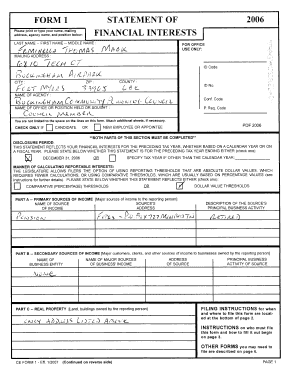 FORM 1
STATEMENT OF
FINANCIAL INTERESTS
2006
Please print or type your name, mailing
address, agency name, and position below:
LAST NAME -- FIRST NAME -- MIDDLE NAME
Thomas Mark
MAILING ADDRESS
6810 Tech Ct
Buckingham Airpark
CITY ZIP COUNTY
Fort Myers 33905 Lee
NAME OF AGENCY
Buckingham Community Planning Council
NAME OF OFFICE OR POSITION HELD OR SOUGHT
Council Member
You are not limited to the space on the lines on this form. Attach additional sheets, if necessary.
CHECK ONLY IF CANDIDATE OR NEW EMPLOYEE OR APPOINTEE
FOR OFFICE
USE ONLY:
ID Code
ID No.
Conf. Code
P. Req. Code
PDF 2006
**BOTH PARTS OF THIS SECTION MUST BE COMPLETED**
DISCLOSURE PERIOD:
THIS STATEMENT REFLECTS YOUR FINANCIAL INTERESTS FOR THE PRECEDING TAX YEAR, WHETHER BASED ON A CALENDAR YEAR OR ON
A FISCAL YEAR. PLEASE STATE BELOW WHETHER THIS STATEMENT IS FOR THE PRECEDING TAX YEAR ENDING EITHER (check one):
DECEMBER 31, 2006 OR SPECIFY TAX YEAR IF OTHER THAN THE CALENDAR YEAR:
MANNER OF CALCULATING REPORTABLE INTERESTS:
THE LEGISLATURE ALLOWS FILERS THE OPTION OF USING REPORTING THRESHOLDS THAT ARE ABSOLUTE DOLLAR VALUES, WHICH
REQUIRES FEWER CALCULATIONS, OR USING COMPARATIVE THRESHOLDS, WHICH ARE USUALLY BASED ON PERCENTAGE VALUES (see
instructions for further details). PLEASE STATE BELOW WHETHER THIS STATEMENT REFLECTS EITHER (check one):
COMPARATIVE (PERCENTAGE) THRESHOLDS OR DOLLAR VALUE THRESHOLDS
PART A -- PRIMARY SOURCES OF INCOME [Major sources of income to the reporting person]
NAME OF SOURCE
OF INCOME
SOURCE'S
ADDRESS
DESCRIPTION OF THE SOURCE'S
PRINCIPAL BUSINESS ACTIVITY
Pension
Retired
PART B -- SECONDARY SOURCES OF INCOME [Major customers, clients, and other sources of income to businesses owned by the reporting person]
NAME OF
BUSINESS ENTITY
NAME OF MAJOR SOURCES
OF BUSINESS' INCOME
ADDRESS
OF SOURCE
PRINCIPAL BUSINESS
ACTIVITY OF SOURCE
None
PART C -- REAL PROPERTY [Land, buildings owned by the reporting person]
Only Address Listed Above
FILING INSTRUCTIONS for when
and where to file this form are locat-
ed at the bottom of page 2.
INSTRUCTIONS on who must file
this form and how to fill it out begin
on page 3.
OTHER FORMS you may need to
file are described on page 6.
CE FORM 1 - Eff. 1/2007 (Continued on reverse side) PAGE 1